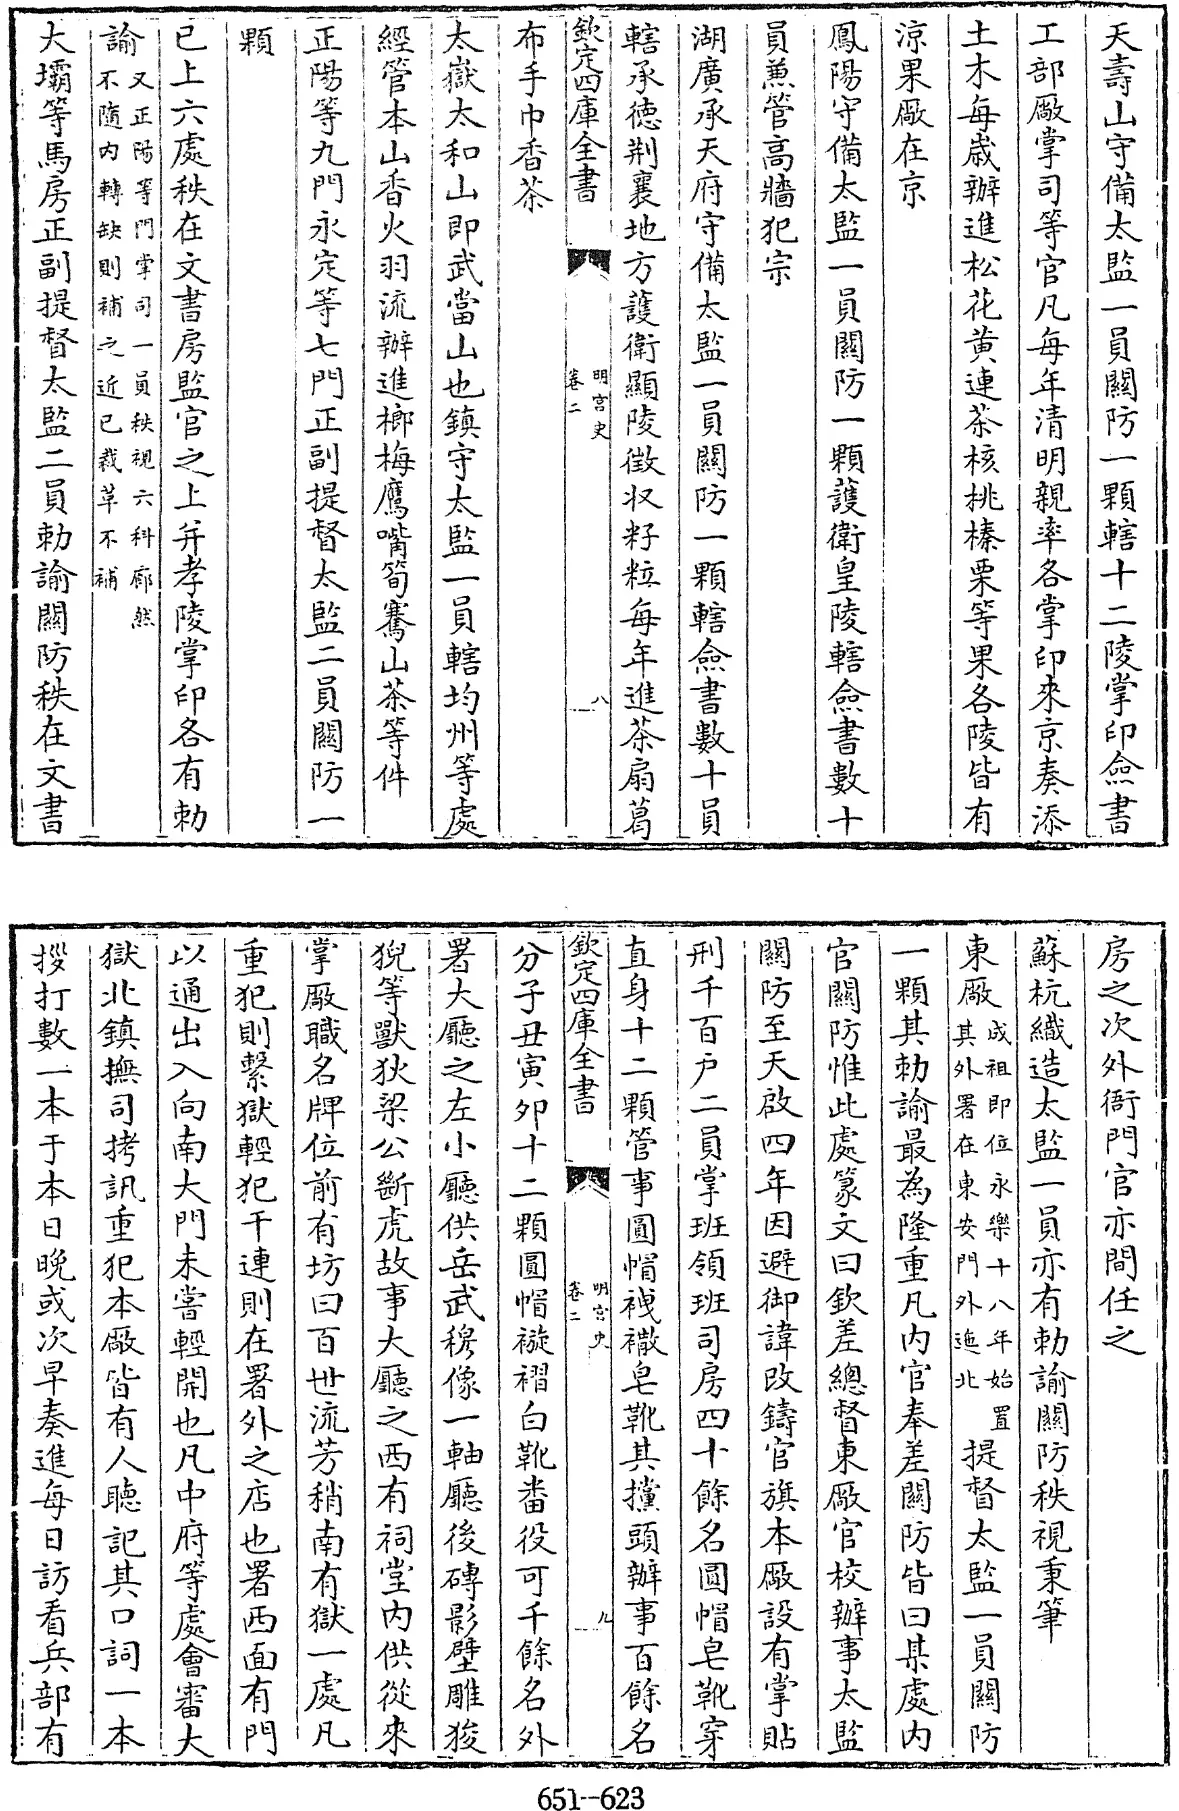 天壽山守備太監一員關防一顆轄十二陵掌印僉書
工部廠掌司等官凡每年清明親率各掌印來京奏添
土木每歲辦進松花黄連茶核桃榛栗等果各陵皆有
涼果廠在京
鳳陽守備太監一員關防一顆護衛皇陵轄僉書數十
員兼管高牆犯宗
湖廣承天府守備太監一員關防一顆轄僉書數十員
轄承德荆襄地方護衛顯陵徵収籽粒每年進茶扇葛
欽定四庫全書
明宫史
卷二
八
布手巾香茶
太嶽太和山即武當山也鎮守太監一員轄均州等處
經管本山香火羽流辦進榔梅鷹嘴筍騫山茶等件
正陽等九門永定等七門正副提督太監二員關防一
顆
已上六處秩在文書房監官之上并孝陵掌印各有勅
諭又正陽等門掌司一員秩視六科廊然
不隨内轉缺則補之近已裁革不補
大壩等馬房正副提督太監二員勅諭關防秩在文書
房之次外衙門官亦間任之
蘇杭織造太監一員亦有勅諭關防秩視秉筆
東廠成祖即位永樂十八年始置
其外署在東安門外迤北提督太監一員關防
一顆其勅諭最為隆重凡内官奉差關防皆曰某處内
官關防惟此處篆文曰欽差總督東廠官校辦事太監
關防至天啟四年因避御諱改鑄官旗本廠設有掌貼
刑千百户二員掌班領班司房四十餘名圓帽皂靴穿
直身十二顆管事圓帽襪𧞤皂靴其攩頭辦事百餘名
欽定四庫全書
明宫史
卷二
九
分子丑寅夘十二顆圓帽褷褶白靴畨役可千餘名外
署大廳之左小廳供岳武穆像一軸廳後磚影壁雕狻
猊等獸狄梁公斷虎故事大廳之西有祠堂内供從來
掌廠職名牌位前有坊曰百世流芳稍南有獄一處凡
重犯則繫獄輕犯干連則在署外之店也署西面有門
以通出入向南大門未嘗輕開也凡中府等處會審大
獄北鎮撫司拷訊重犯本廠皆有人聽記其口詞一本
拶打數一本于本日晚或次早奏進每日訪看兵部有
651--623